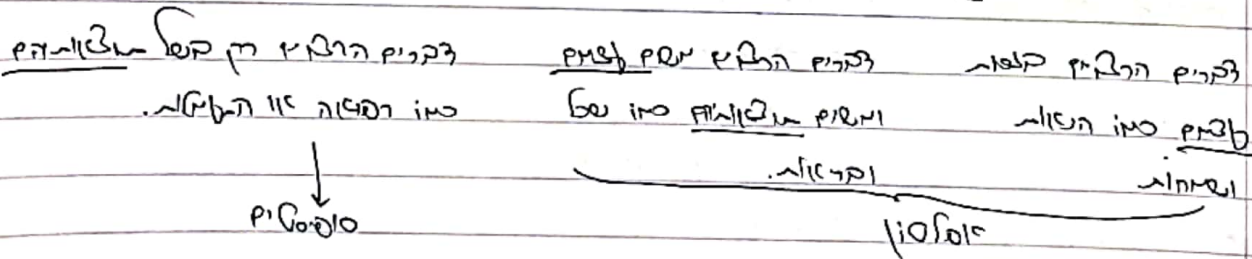 דברים הרצויים בזכות
עצמם כמו הנאות
ושמחות
דברים הרצויים משום עצמם
ומשום תוצאותיהם כמו שכל
ובריאות.
דברים הרצויים רק בשל תוצאותיהם
כמו רפואה או התעמלות.
אפלטון
סופיסטים